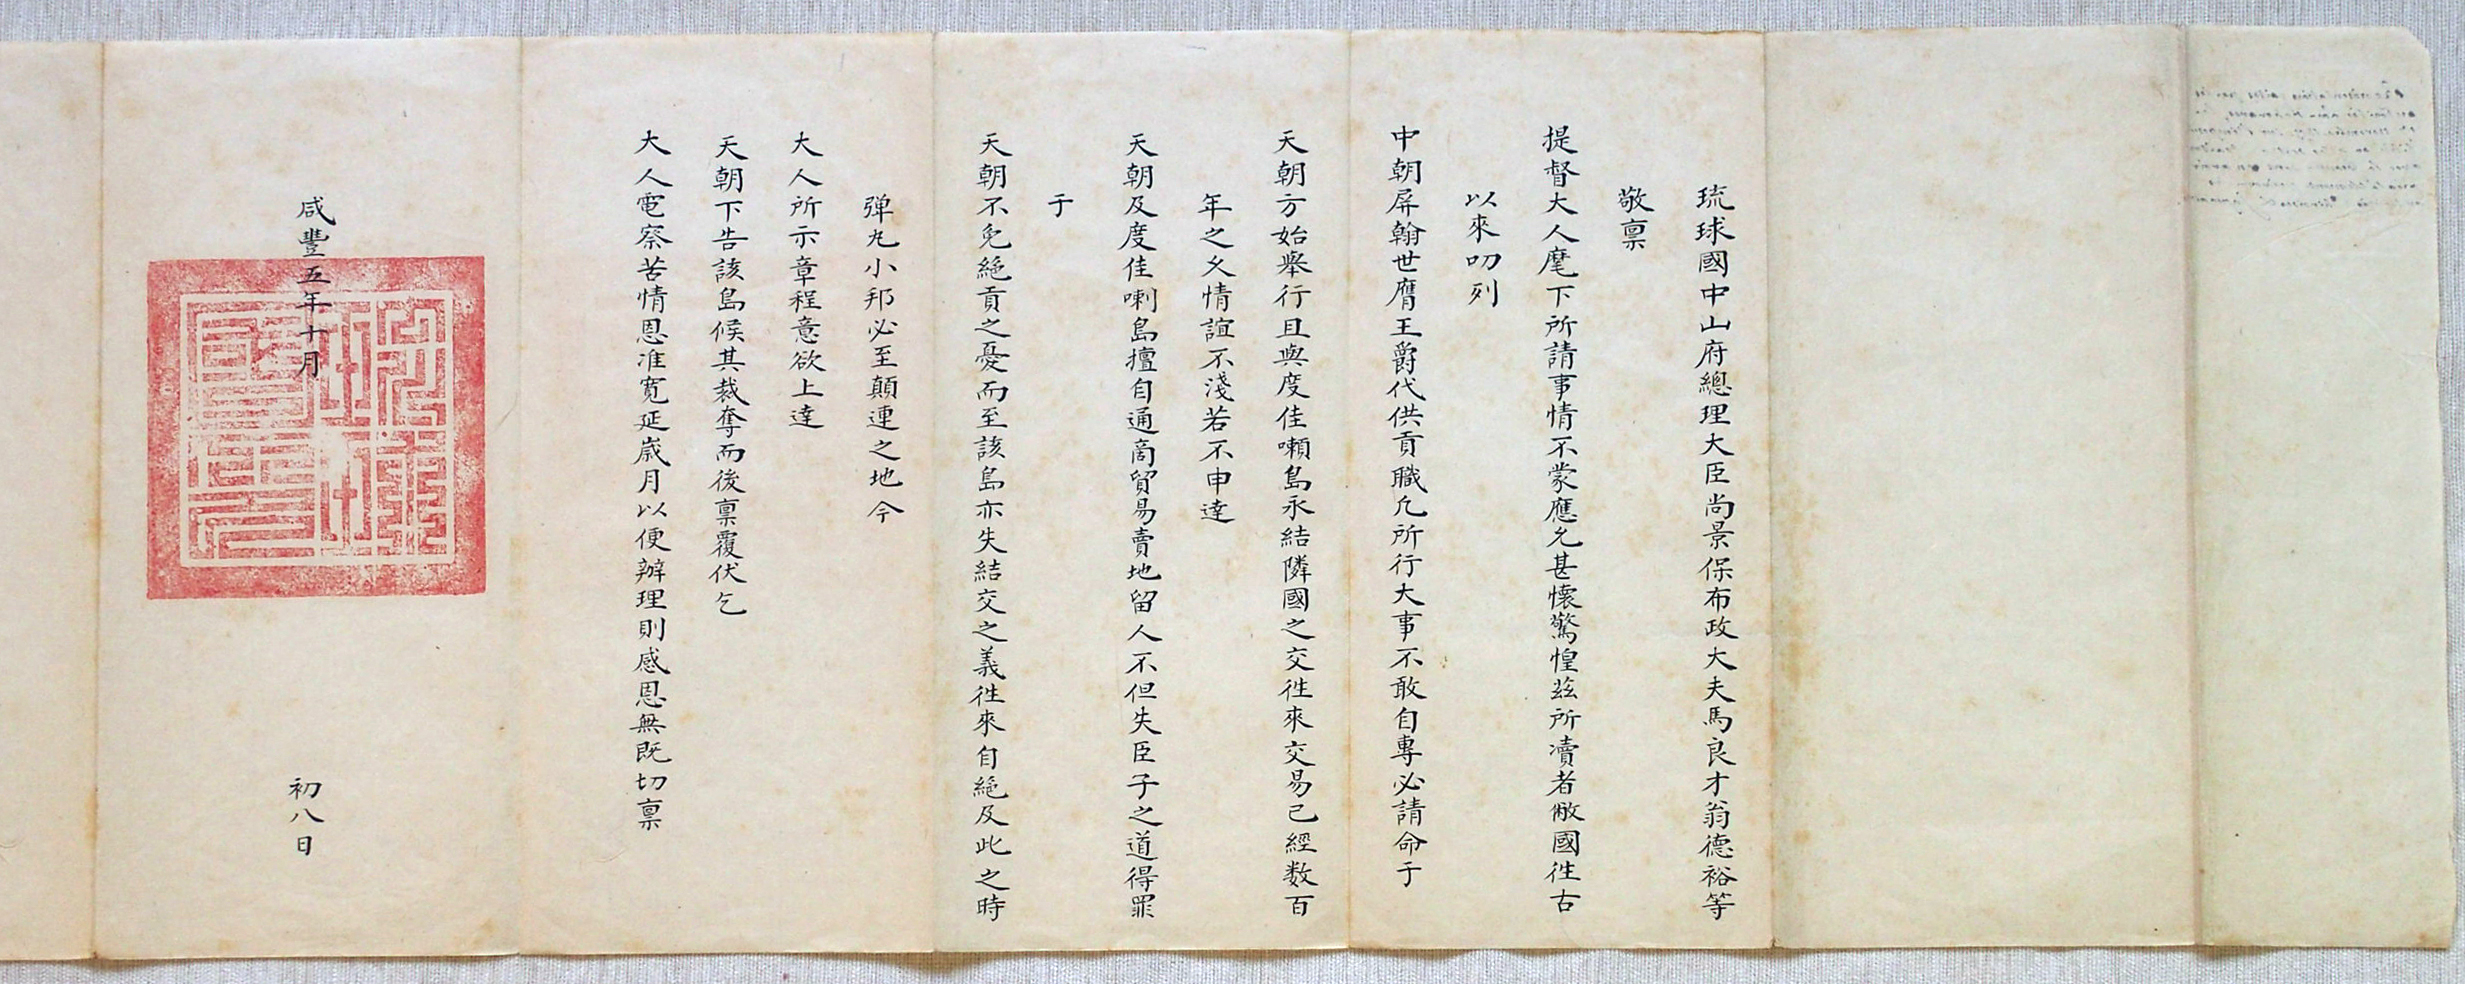 琉球國中山府總理大臣尚景保布政大夫馬良才翁德裕等
敬禀
提督大人麾下所請事情不蒙應允甚懷驚惶茲所瀆者敝國徃古
以來叨列
中朝屏翰世膺王爵代供貢職凡所行大事不敢自專必請命于
天朝方始舉行且與度佳喇島永結隣國之交徃來交易已經数百
年之久情誼不淺若不申達
天朝及度佳喇島擅自通啇貿易賣地留人不但失臣子之道得罪
于
天朝不免絕貢之憂而至該島亦失結交之義徃來自絕及此之時
弹丸小邦必至顛連之地今
大人所示章程意欲上達
天朝下告該島候其裁奪而後禀覆伏乞
大人電察苦情恩准寬延歲月以便辦理則感恩無既切禀
咸豐五年十月
初八日